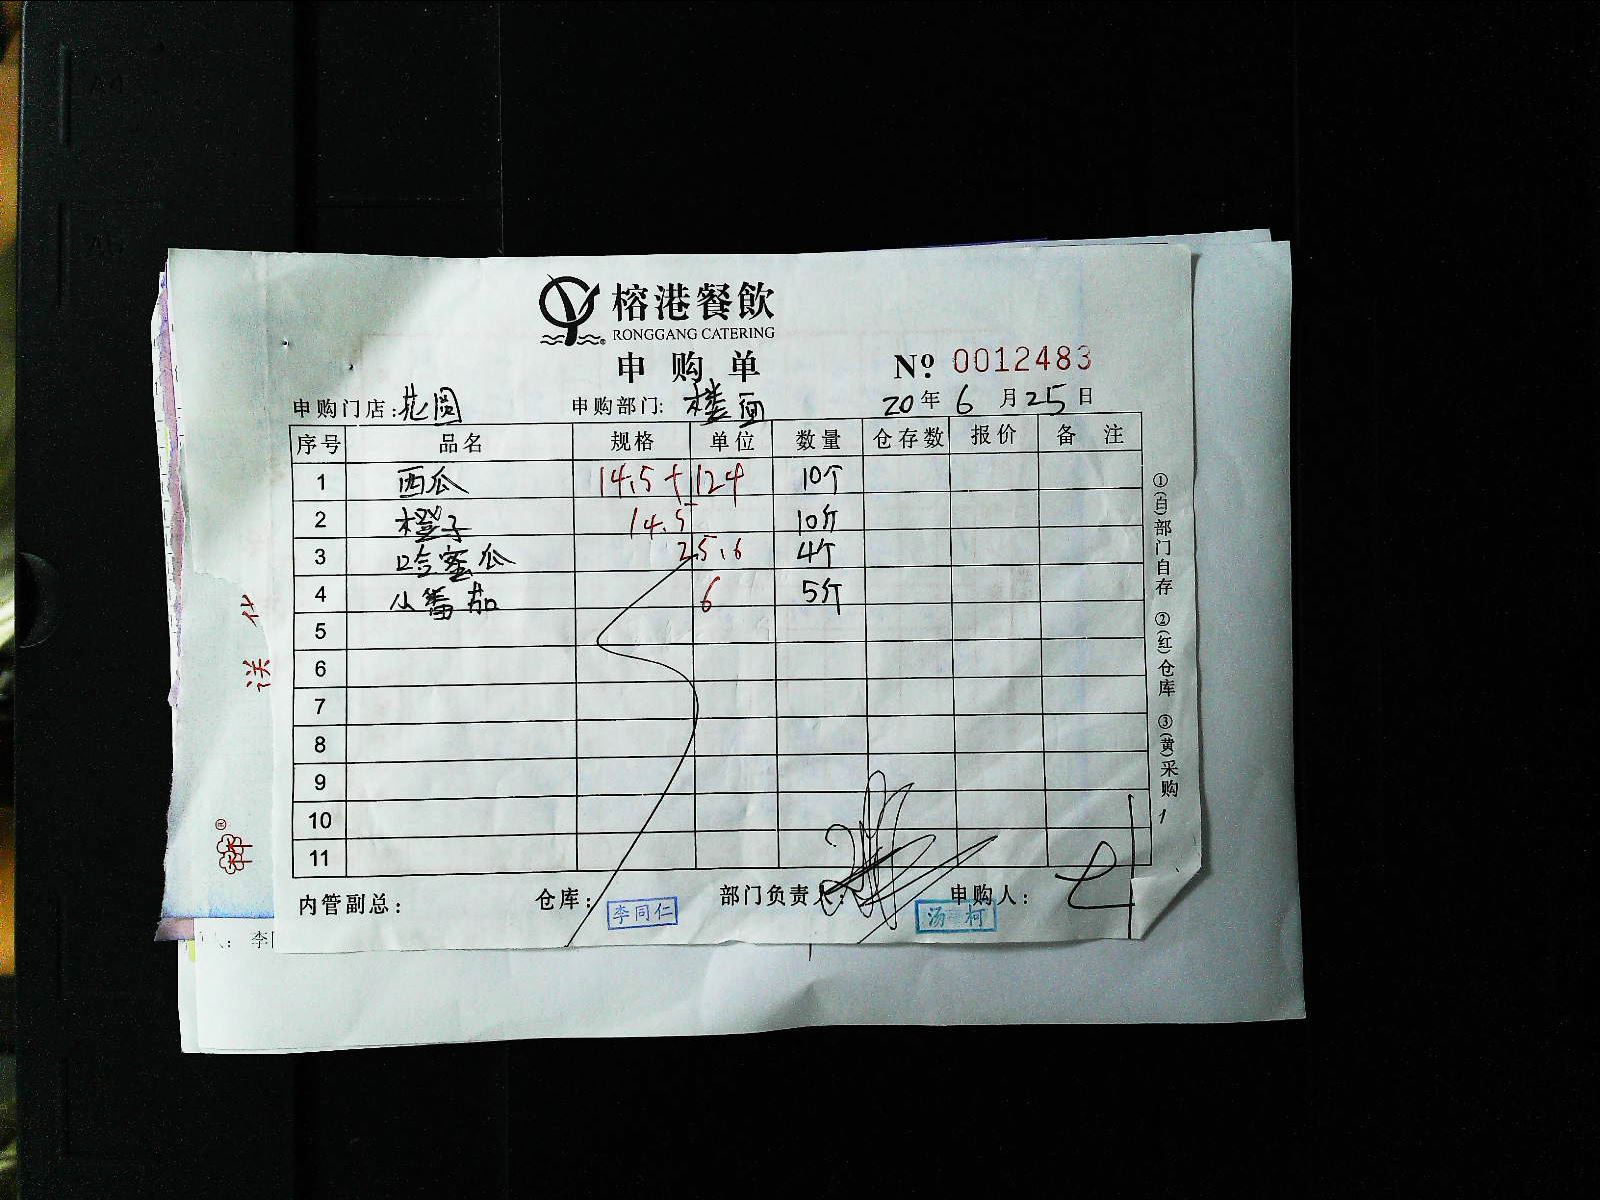 榕港餐飲
RONGGANG CATERING
申购单
№ 0012483
申购门店:花圆 申购部门:楼面 20年6月25日
序号 品名 规格 单位 数量 仓存数 报价 备注
1 西瓜 14.5+124 10个
2 橙子 14.5 10斤
3 哈蜜瓜 25.6 4个
4 小番茄 6 5斤
5
6
7
8
9
10
11
内管副总: 仓库: 李同仁 部门负责人: 申购人:
汤 柯
①(白)部门自存 ②(红)仓库 ③(黄)采购
送
人: 李